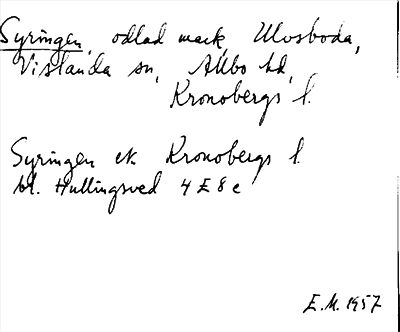 Syringen, odlad mark, Ulvsboda,
Vislanda sn, Allbo hd,
Kronobergs l.
Syringen ek. Kronobergs l.
bl. Hullingsved 4 E 8 c
E.M. 1957